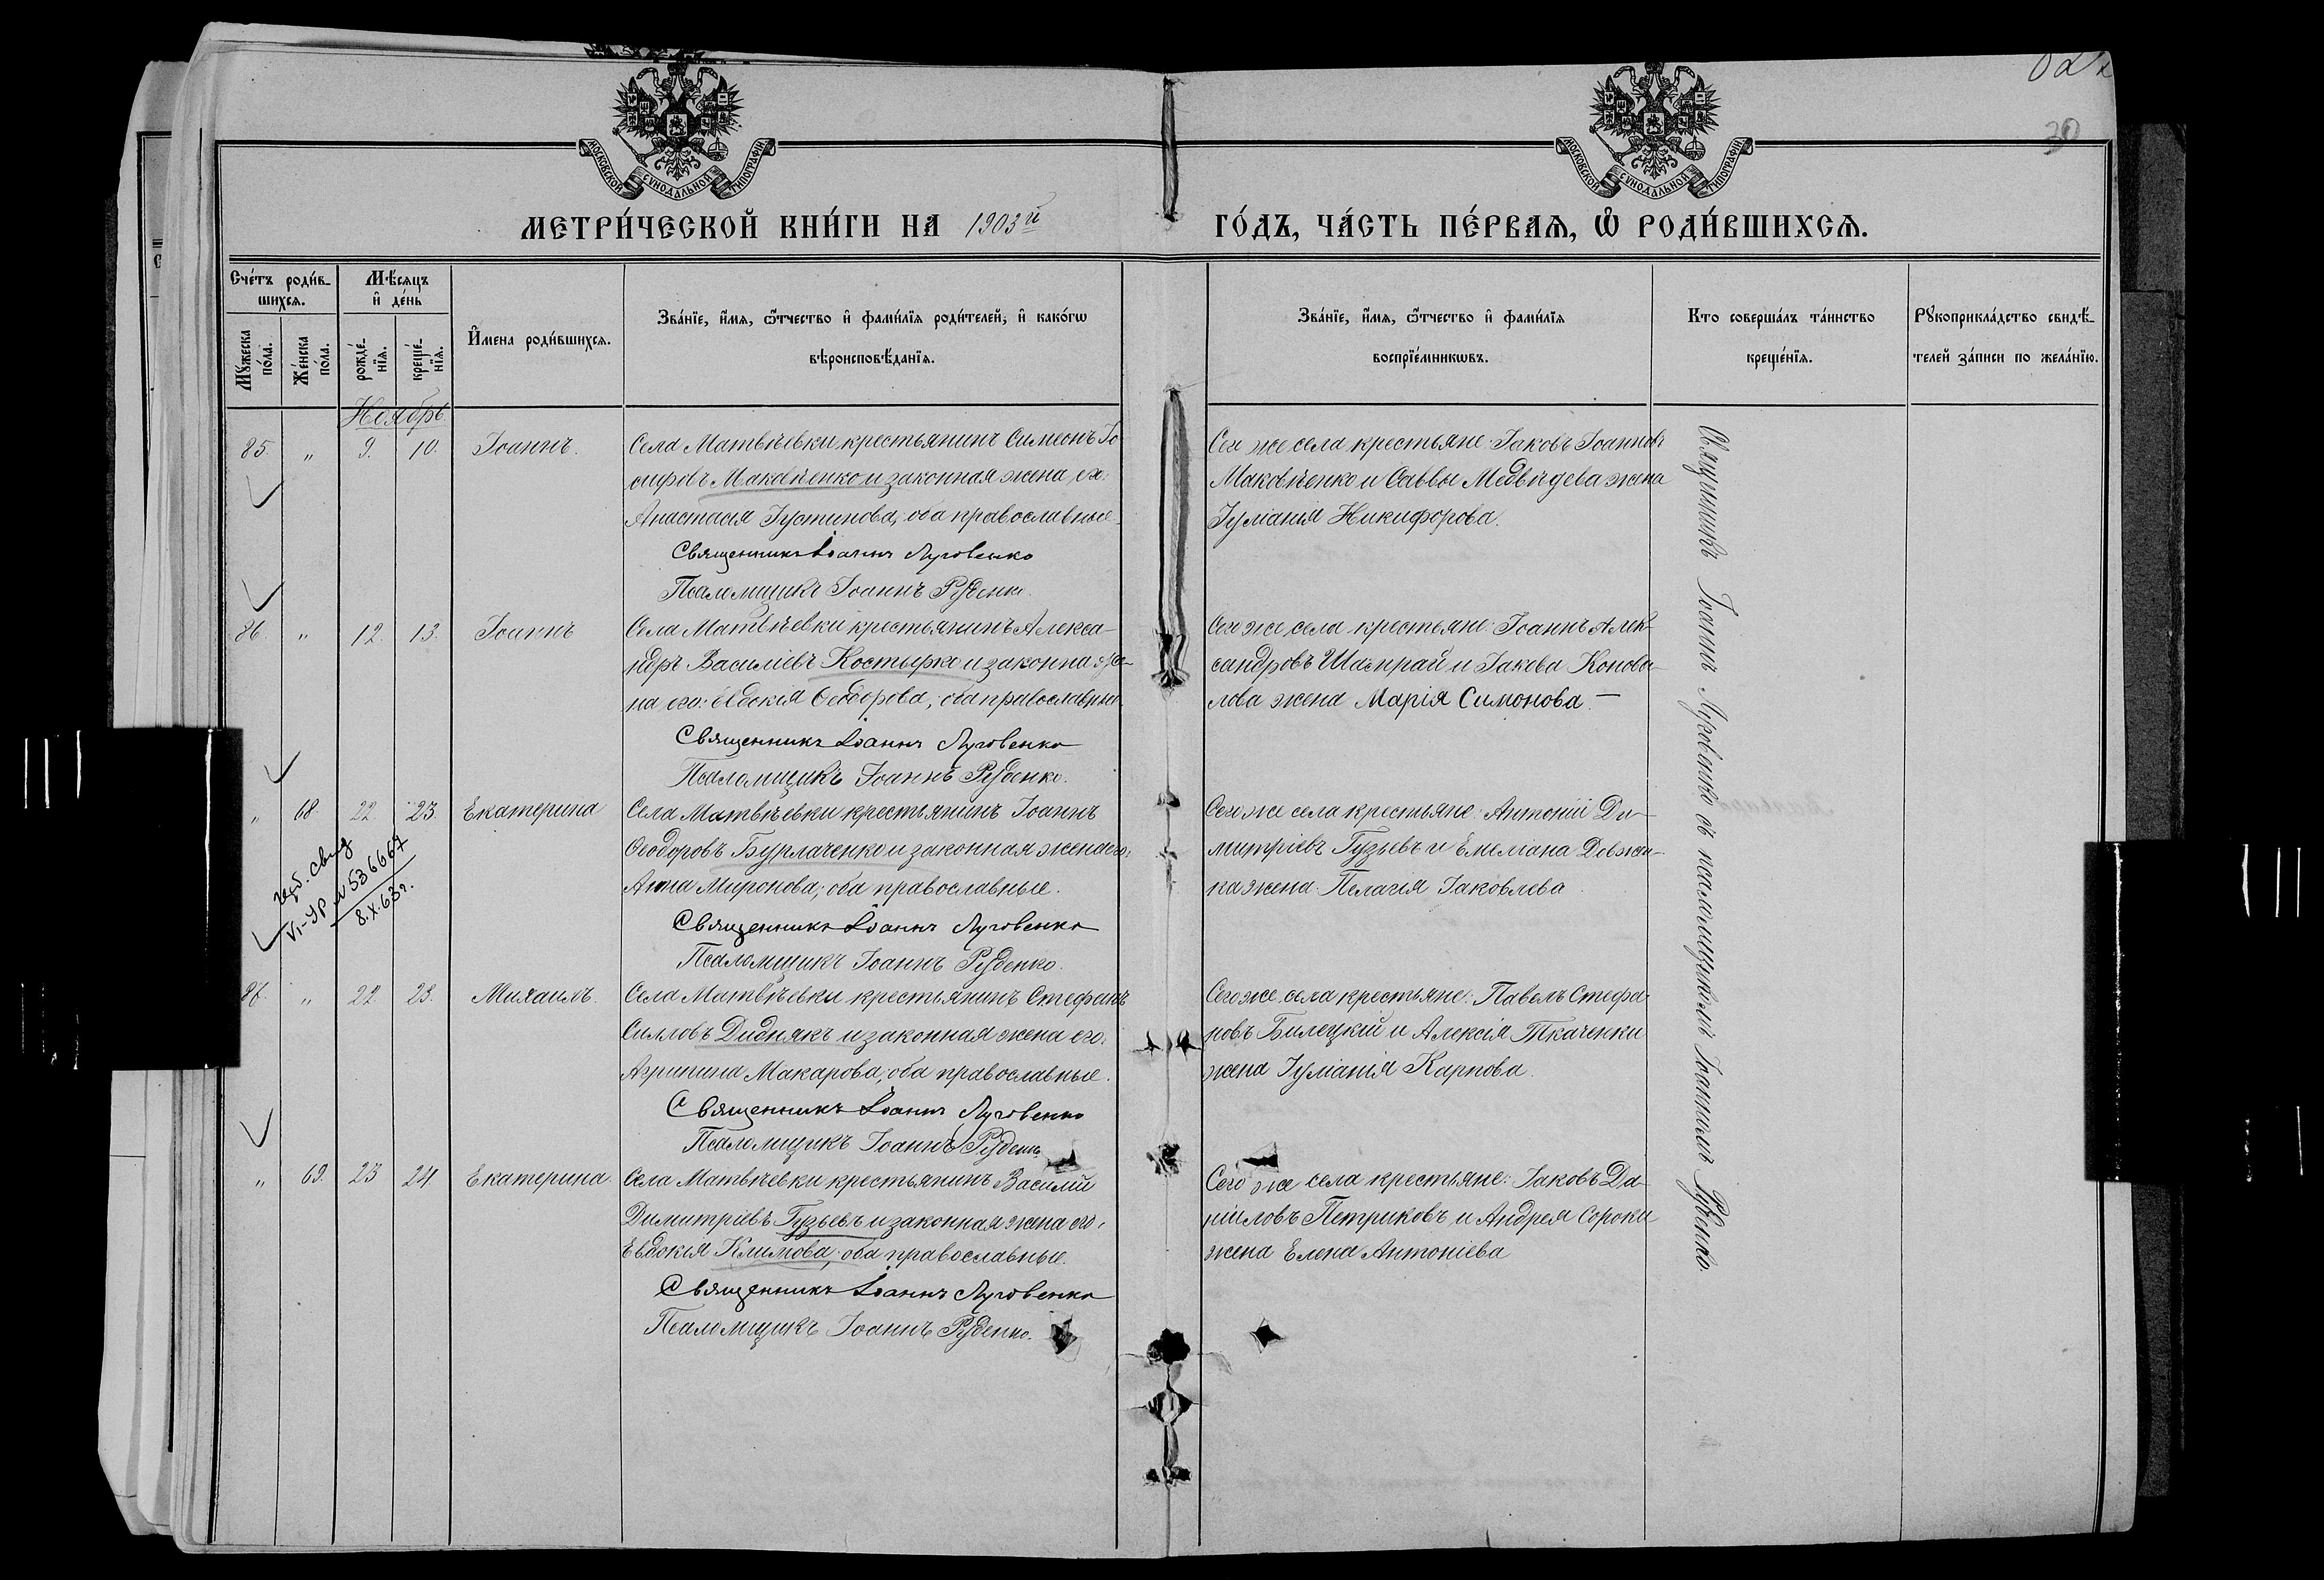 МОСКОВСКОЙ СѴНОДАЛЬНОЙ ТИПОГРАФІИ
МОСКОВСКОЙ СѴНОДАЛЬНОЙ ТИПОГРАФІИ
30
МЕТРИ́ЧЕСКОЙ КНИ́ГИ НА 1903й ГО́ДЪ, ЧА́СТЬ ПЕ́РВАѦ, Ѽ РОДИ́ВШИХСѦ.
Сче́тъ роди́в-
шихсѧ.
Мꙋ́жеска
по́ла.
Же́нска
по́ла.
Мѣ́сѧцъ
и҆ де́нь
рожде́-
нїѧ.
креще́-
нїѧ.
И҆мена роди́вшихсѧ.
Зва́нїе, и҆́мѧ, ѻ҆́тчество и҆ фами́лїѧ роди́телей, и҆ како́гѡ
вѣроисповѣ́данїѧ.
Зва́нїе, и҆́мѧ, ѻ҆́тчество и҆ фами́лїѧ
воспрїе́мникѡвъ.
Кто соверша́лъ та́инство
креще́нїѧ.
Рꙋкоприкла́дство свидѣ́-
телей за́писи по жела́нїю.
Ноябрь
85. " 9. 10. Іоаннъ.
Села Матвѣевки крестьянинъ Симеонъ Іо
сифовъ Маковѣенко и законная жена его:
Анастасія Іустинова; оба православные.
Священникъ Іоаннъ Луговенко
Псаломщикъ Іоаннъ Руденко.
Сего же села крестьяне: Іаковъ Іоанновъ
Маковѣенко и Саввы Медвѣдева жена
Іуліанія Никифорова.
86. " 12. 13. Іоаннъ
Села Матвѣевки крестьянинъ Алекса-
ндръ Василіевъ Костырко и законная же-
на его: Евдокія Ѳеодорова; оба православные
Священникъ Іоаннъ Луговенко
Псаломщикъ Іоаннъ Руденко.
Сего же села крестьяне: Іоаннъ Алек-
сандровъ Шапрай и Іакова Конова-
лова жена Марія Симонова. —
" 68. 22. 23. Екатерина
Села Матвѣевки крестьянинъ Іоаннъ
Ѳеодоровъ Бурлаченко и законная жена его:
Анна Миронова; оба православные.
Священникъ Іоаннъ Луговенко
Псаломщикъ Іоаннъ Руденко.
Сего же села крестьяне: Антоній Ди-
митріевъ Гузьевъ и Емеліана Довжи-
ка жена Пелагія Іаковлева
свид
VI-УР № 536667
8.X.63г.
" 22. 23. Михаилъ.
Села Матвѣевки крестьянинъ Стефанъ
Силловъ Диднякъ и законная жена его:
Агрипина Макарова; оба православные.
Священникъ Іоаннъ Луговенко
Псаломщикъ Іоаннъ Руденко
Сего же села крестьяне: Павелъ Стефа-
новъ Билецкій и Алексія Ткаченки
жена Іуліанія Карпова.
" 69. 23 24 Екатерина.
Села Матвѣевки крестьянинъ Василій
Димитріевъ Гузьевъ и законная жена его:
Евдокія Климова; оба православные.
Священникъ Іоаннъ Луговенко
Псаломщикъ Іоаннъ Руденко.
Сего же села крестьяне: Іаковъ Да-
ніиловъ Петриковъ и Андрея Сороки
жена Елена Антоніева
Священникъ Іоаннъ Луговенко съ псаломщикомъ Іоанномъ Руденко.